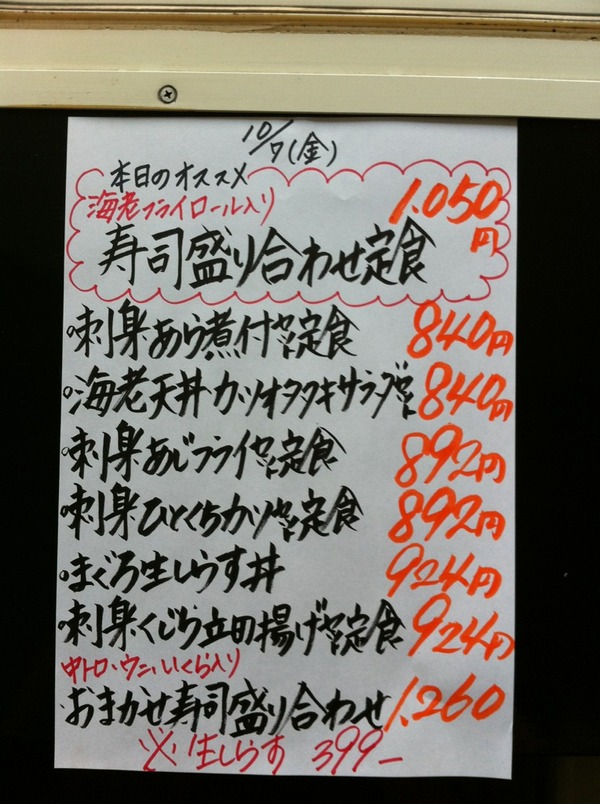 10/7(金)
本日のオススメ
海老フライロール入り
寿司盛り合わせ定食 1.050円
・刺身あら煮付セット定食 840円
・海老天丼カツオタタキサラダセット 840円
・刺身あじフライセット定食 892円
・刺身ひとくちカツセット定食 892円
・まぐろ生しらす丼 924円
・刺身くじら立田揚げセット定食 924円
中トロ・ウニ・いくら入り
・おまかせ寿司盛り合わせ 1.260
※生しらす 399-